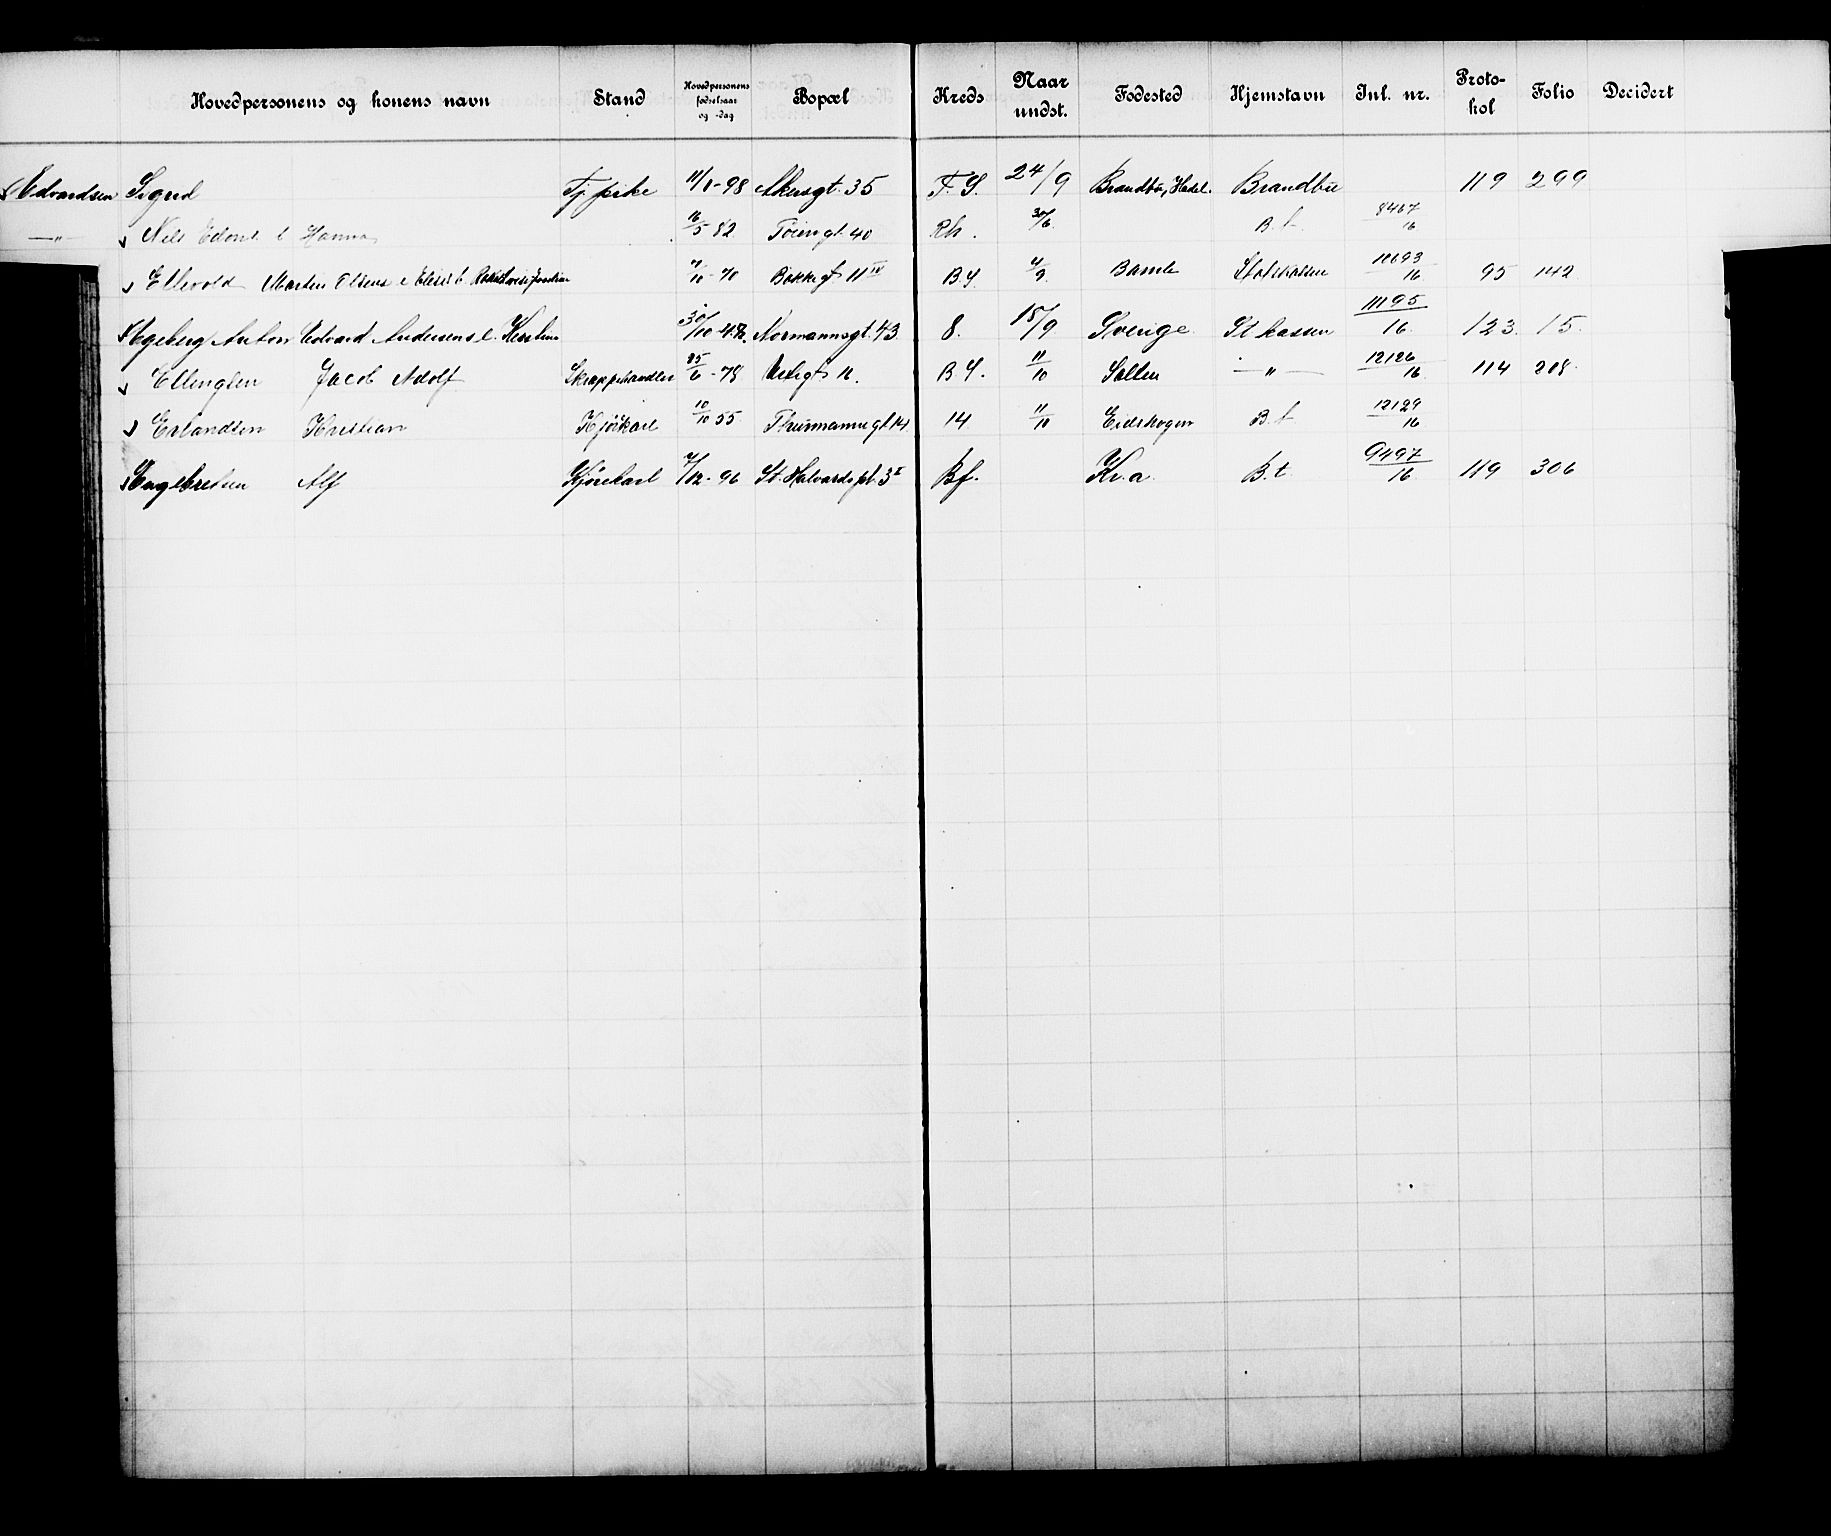 Hovedpersonens og konens navn Stand Hovedpersonens fødselsaar og -dag Bopæl Kreds Naar undst. Fødested Hjemstavn Inl. nr. Proto-kol Folio Decidert
Edvardsen Sigrid Tj. pike 11/8-98 Akersgt. 35 F. S. 24/9 Brandbu, Hadel. Brandbu 119 299
—"— Nils Edon e. b. Hanna 16/5 82 Tøiengt. 40 Rh. 30/6 B. t. 8467/16
Ellevold Martin Olsens e 7/10-70 Bakkegt 11 IV B.S. 4/9 Bamle Statskassen 95 142
Egeberg Anton Edvard Andersens e. 30/10-42 Normannsgt. 43 8. 18/9 Sverige St kassen 11195/16 123 15
Ellingsen Jacob Adolf Skraphandler 25/6-78 B.S. 11/10 —"— 12126/16 114 208
Erlandsen Kristian Kjørkarl 10/10 55 Thurmannsgt 14 14 11/10 Eidskogen B. t 12129/16
Engebretsen Alf Kjørekarl 7/12-96 St. Halvards pl. 3 II Bf. Kr.a. B. t. 9497/16 119 306